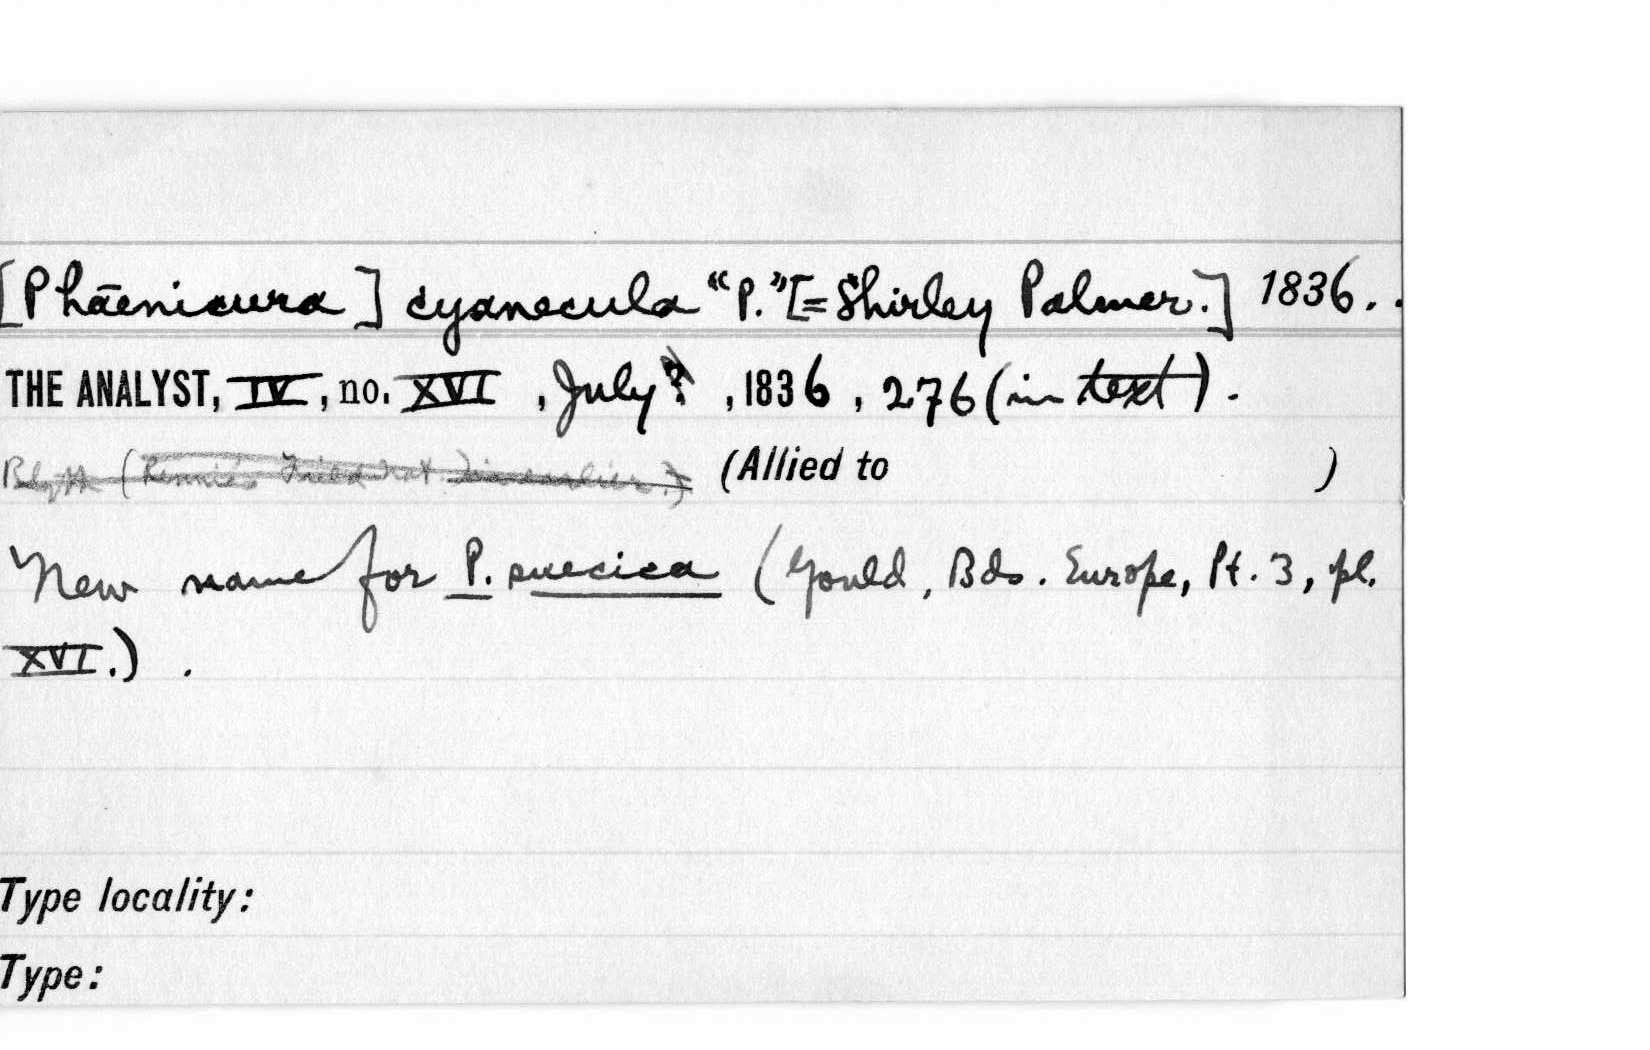 [Phāenicura] cyanecula "P." [= Shirley Palmer.] 1836. .
THE ANALYST, IV, no. XVI , July? , 1836 , 276 (in text) .
Blyth (Rennie's (Allied to )
New name for P. suecica (Gould, Bds. Europe, Pt. 3, pl.
XVI.) .
Type locality:
Type: